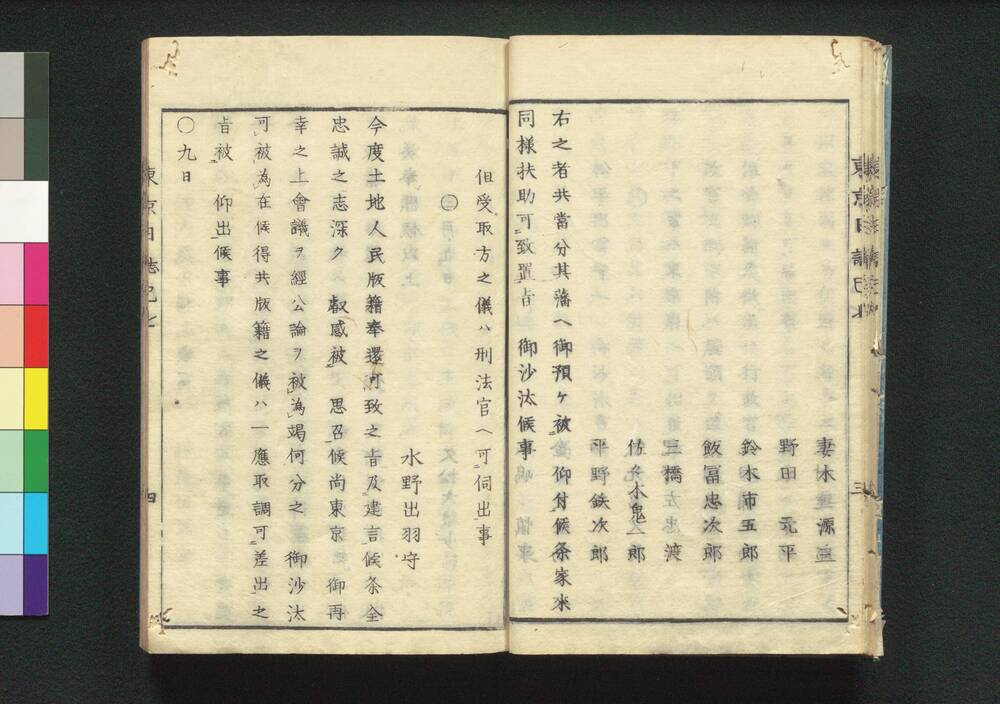 妻木與源
野田元平
鈴木市五郎
飯冨忠次郎
三橋左忠渡
佐々木鬼一郎
平野鉄次郎
右之者共當分其藩ヘ御預ケ被 仰付候条家来
同様扶助可致置旨 御沙汰候事
三
但受取方之儀ハ刑法官ヘ可伺出事
〇
水野出羽守
今度土地人民版籍奉還可致之旨及建言候条全
忠誠之志深ク 叡感被 思召候尚東京 御再
幸之上會議ヲ經公論ヲ被為竭何分之 御沙汰
可被為在候得共版籍之儀ハ一應取調可差出之
旨被 仰出候事
〇九日
東京日誌
四